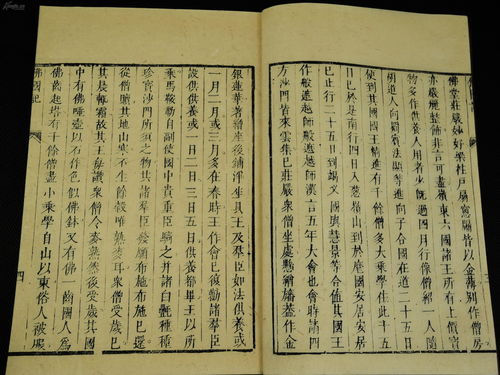 佛堂莊嚴妙好梁柱戶扇窻牖皆以金薄別作僧房
亦嚴麗整飾非言可盡嶺東六國諸王所有上價寶
物多作供養人用者少既過四月行像僧韶一人隨
胡道人向罽賓法顯等進向子合國在道二十五日
便到其國國王精進有千餘僧多大乘學住此十五
日已於是南行四日入葱嶺山到於麾國安居安居
已止行二十五日到竭叉國與慧景等合值其國王
作般遮越師般遮越師漢言五年大會也會時請四
方沙門皆來雲集已莊嚴衆僧坐處懸繒幡蓋作金
銀蓮華著繒座後鋪淨坐具王及羣臣如法供養或
一月二月或三月多在春時王作會已復勸諸羣臣
設供供養或一日二日三日五日供養都畢王以所
乘馬鞍勒自副使國中貴重臣騎之并諸白㲲種種
珍寶沙門所須之物共諸羣臣發願布施布施已還
從僧贖其地山寒不生餘穀唯熟麥耳衆僧受歲已
其晨輒霜故其王每讚衆僧令麥熟然後受歲其國
中有佛唾壺以石作色似佛鉢又有佛一齒國人爲
佛齒起塔有千餘僧盡小乘學自山以東俗人被服
佛國記
四